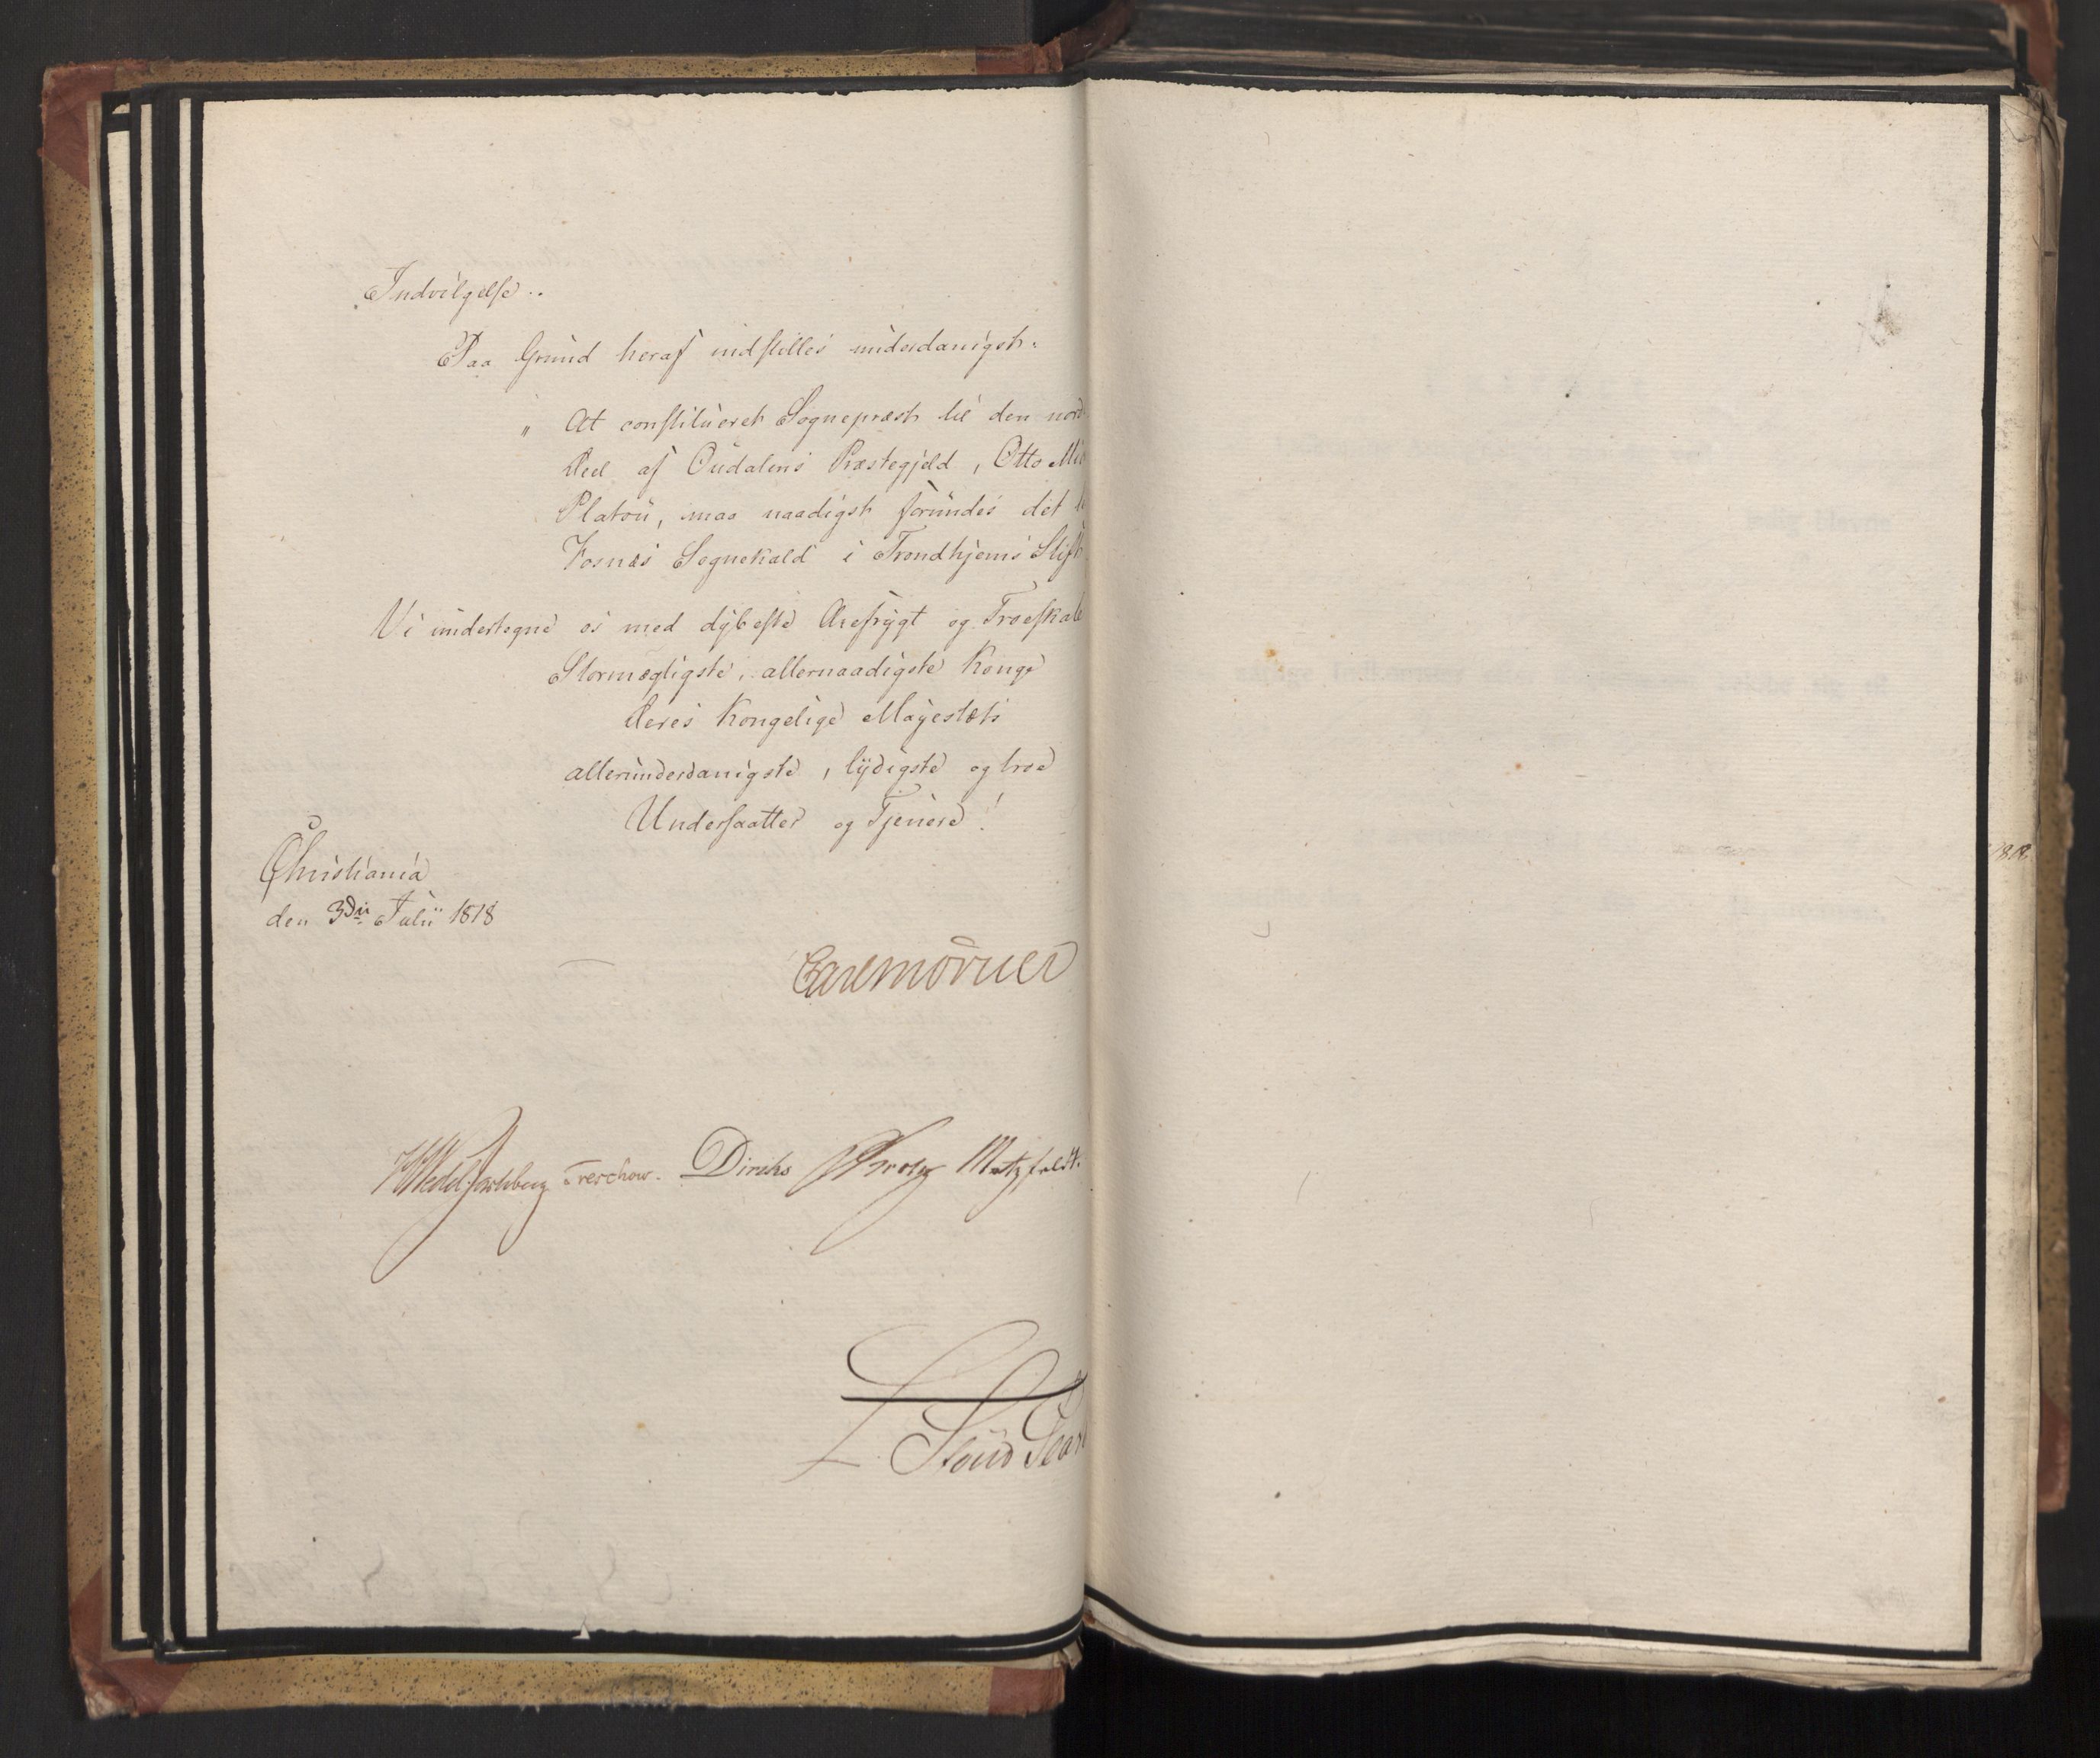 Indvilgelse..
Paa Grund heraf indstilles underdanigst:
„ At constitueret Sognepræst til den nord
Deel af Oudalens Præstegjeld, Otto
Platou, maa naadigst forundes det
Fosnæs Sognekald i Trondhjems Stift
Vi undertegne os med dybeste Ærefrygt og Troeskab
Stormægtigste, allernaadigste Konge
Deres Kongelige Mayestæts
allerunderdanigste, lydigste og troe
Undersaatter og Tjenere!
Christiania
den 3die Julii 1818
Carl Mörner
HWedel Jarlsberg Treschow. Diriks Motzfeldt.
Stoud
1818.